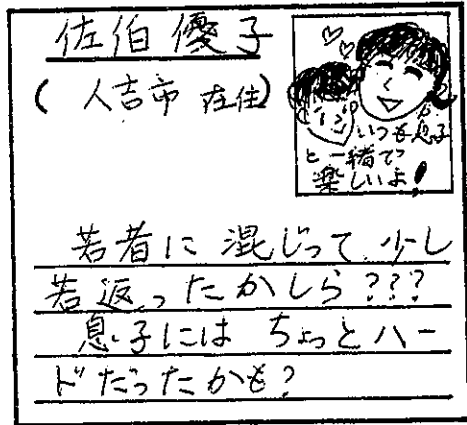 佐伯優子
(人吉市 在住)
いつも息子
と一緒で
楽しいよ!
若者に混じって少し
若返ったかしら???
息子には ちょっとハー
ドだったかも?